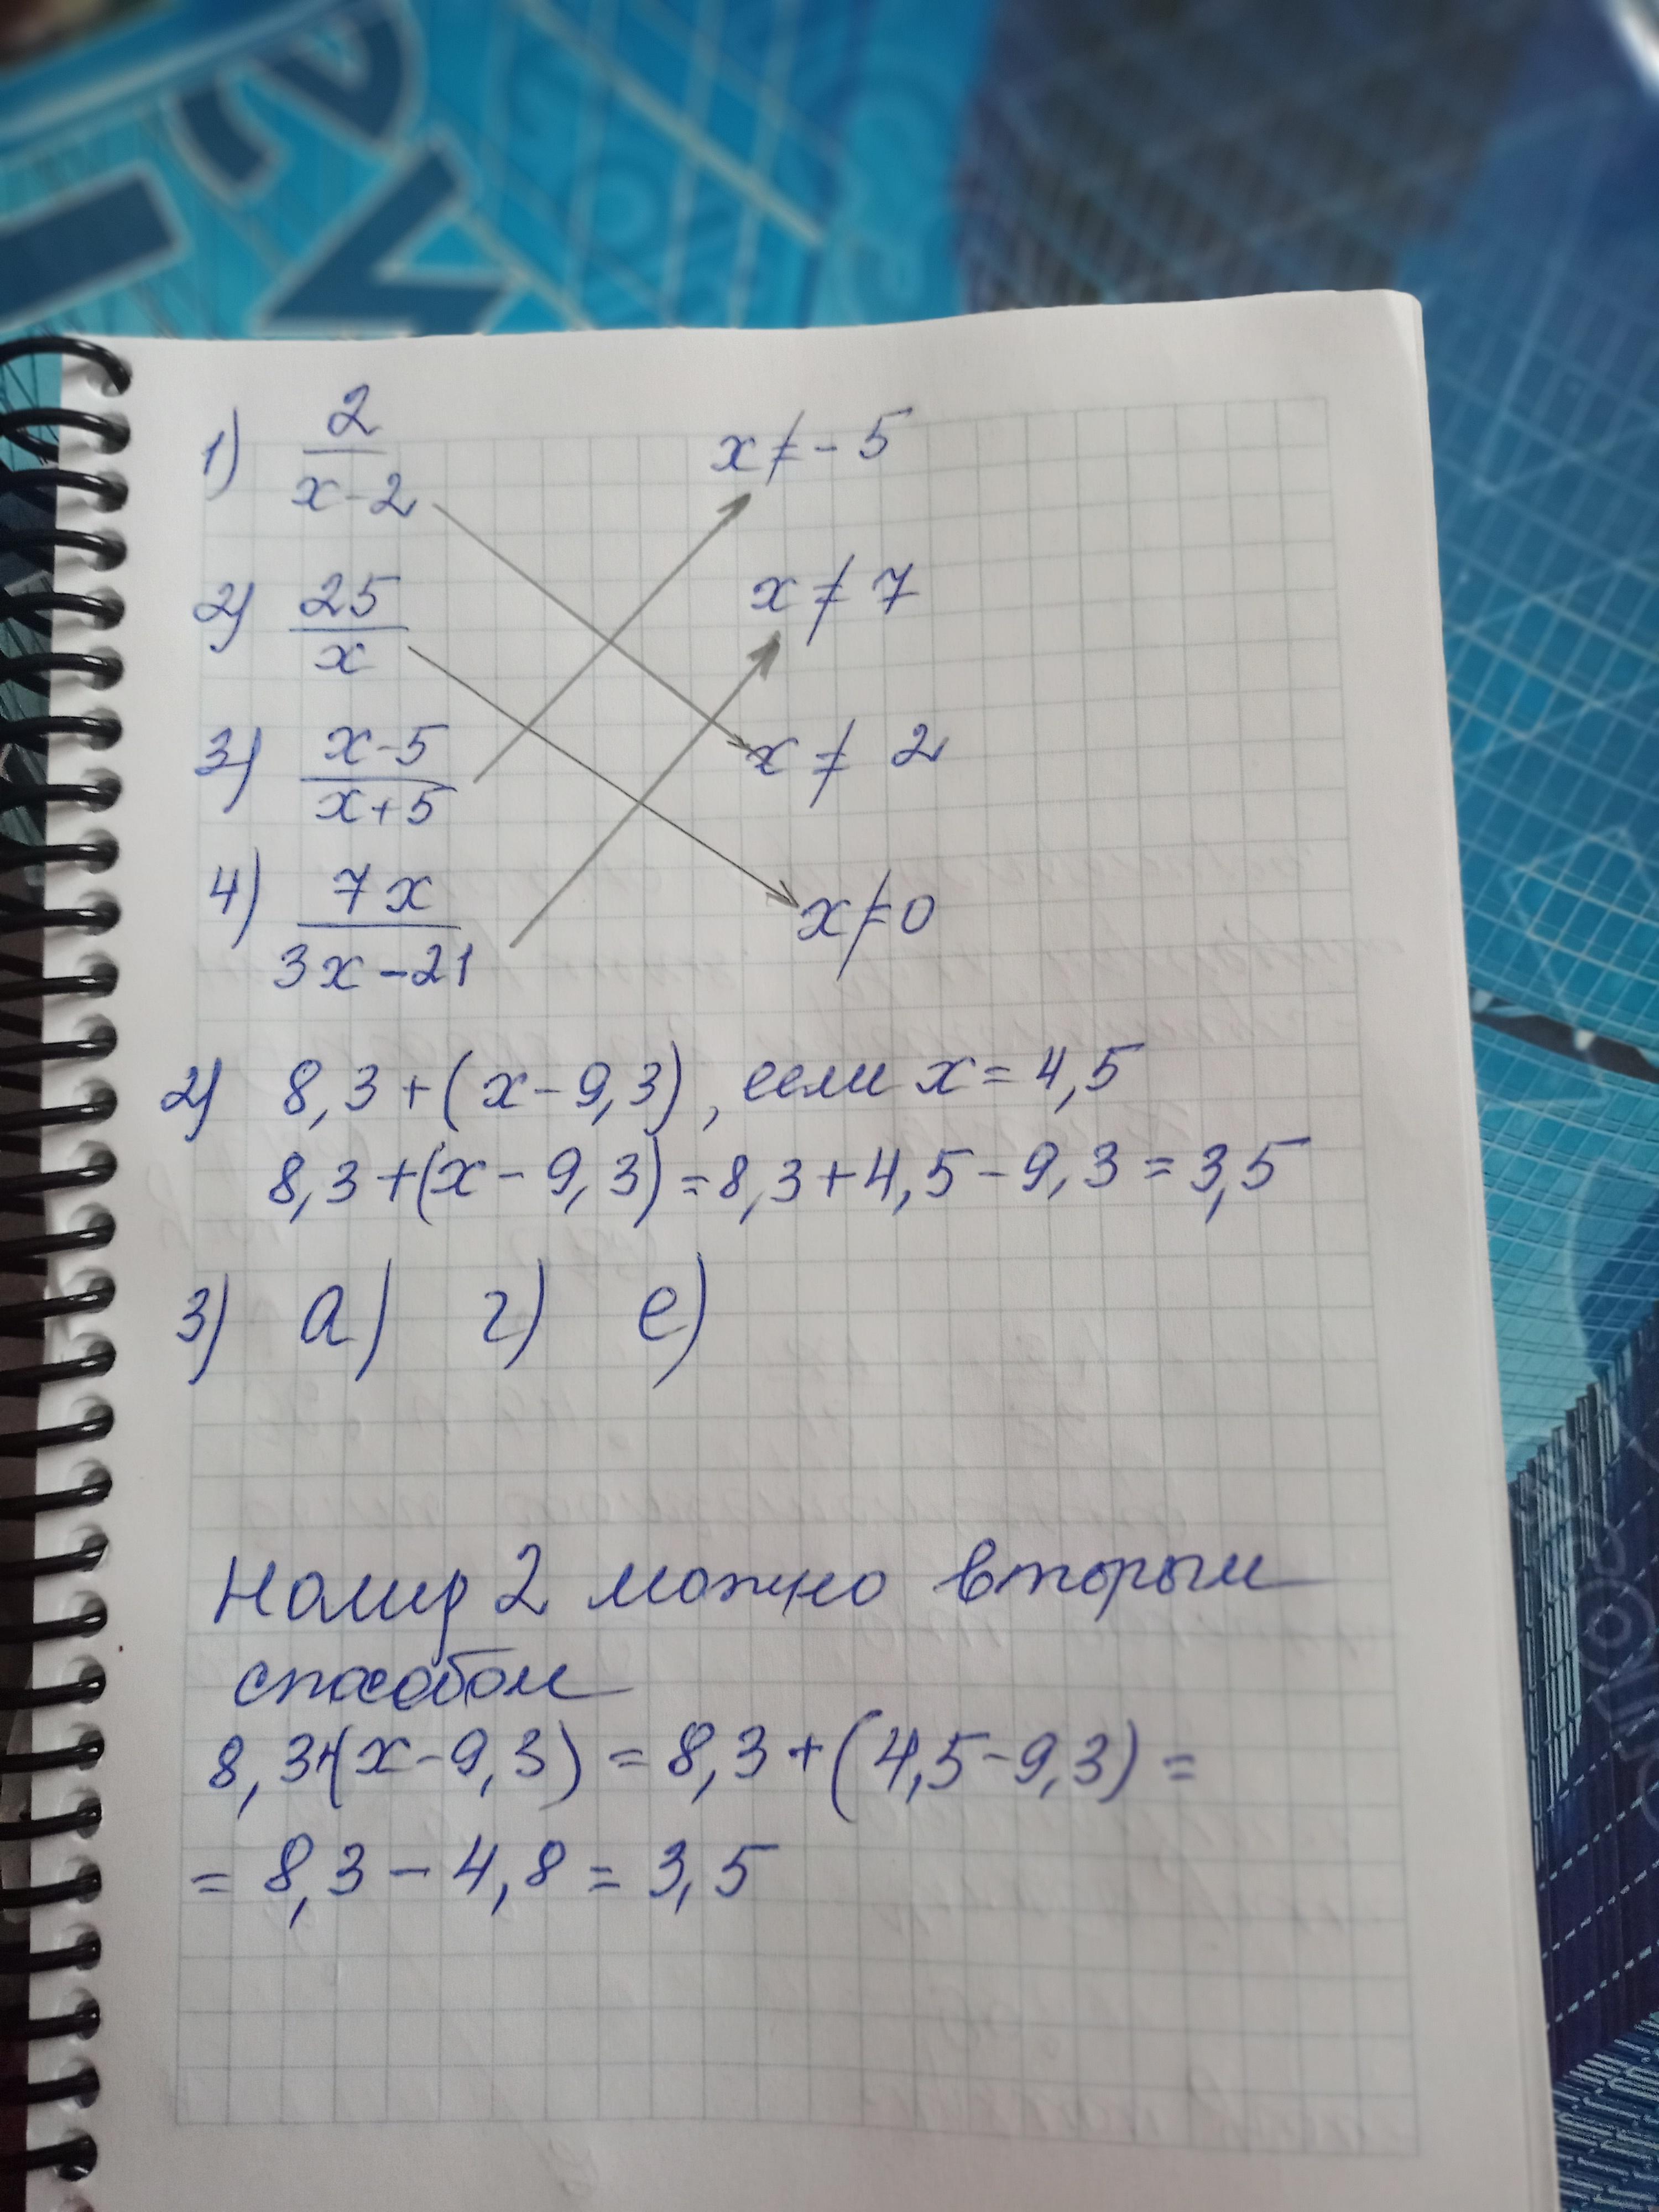 1) 2/(x-2) x≠-5
2) 25/x x≠7
3) (x-5)/(x+5) x≠2
4) 7x/(3x-21) x≠0
2) 8,3+(x-9,3), если x=4,5
8,3+(x-9,3)=8,3+4,5-9,3=3,5
3) а) г) е)
Номер 2 можно вторым
способом
8,3+(x-9,3)=8,3+(4,5-9,3)=
=8,3-4,8=3,5